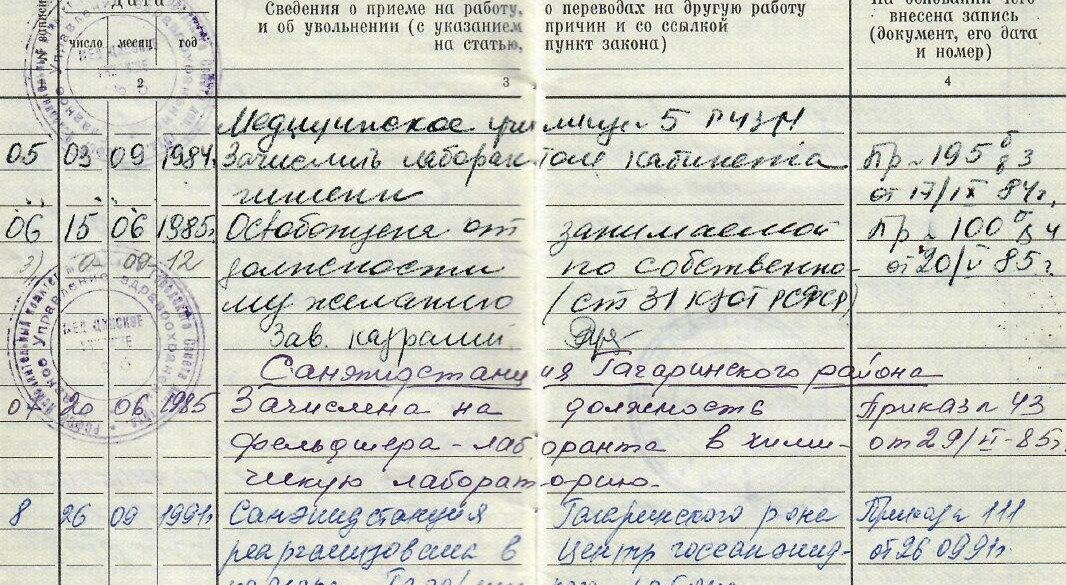 Дата
Сведения о приеме на работу, о переводах на другую работу
и об увольнении (с указанием причин и со ссылкой
на статью, пункт закона)
На основании чего
внесена запись
(документ, его дата
и номер)
число месяц год
2 3 4
Медицинское училище 5 ГУЗМ
05 03 09 1984г. Зачислить лаборантом кабинета Пр. 195
гигиены от 17/IX 84г.
06 15 06 1985г. Освобождена от занимаемой Пр. 100
должности по собственно- от 20/VI 85г.
му желанию (ст 31 КЗОТ РСФСР)
Зав. кадрами
Санэпидстанция Гагаринского района
07 20 06 1985 Зачислена на должность Приказ № 43
фельдшера-лаборанта в хими- от 29/VI-85г.
ческую лабораторию.
8 26 09 1991г. Санэпидстанция Гагаринского р-она Приказ № 111
реорганизована в Центр госсанэпид- от 26 09 91г.